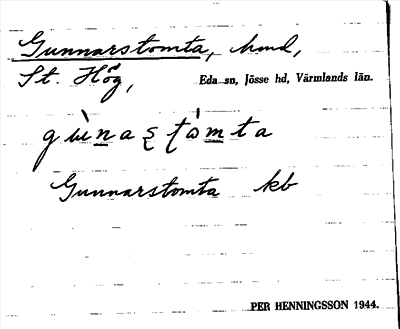 Gunnarstomta, hmd,
St. Hög, Eda sn, Jösse hd, Värmlands län.
gùnaʂʈòmta
Gunnarstomta kb
PER HENNINGSSON 1944.